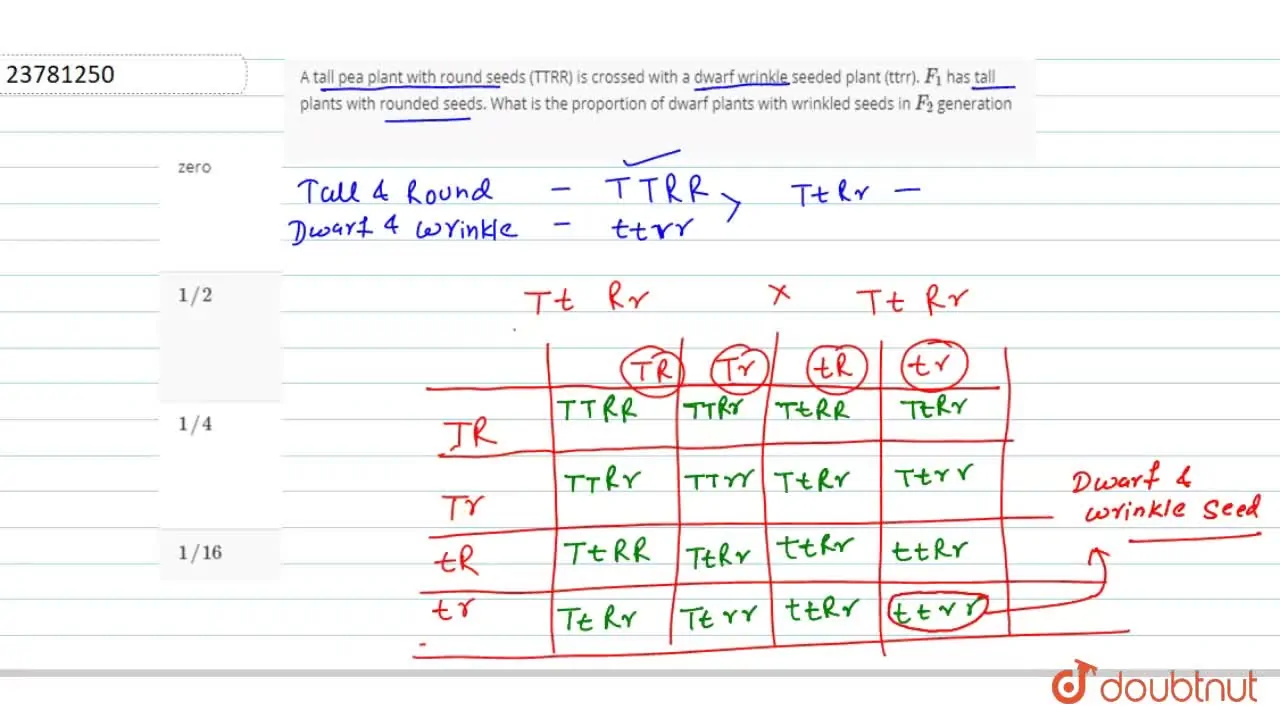 23781250
A tall pea plant with round seeds (TTRR) is crossed with a dwarf wrinkle seeded plant (ttrr). F₁ has tall
plants with rounded seeds. What is the proportion of dwarf plants with wrinkled seeds in F₂ generation
zero
Tall & Round – TTRR TtRr –
Dwarf & wrinkle – ttrr
1/2
Tt Rr × Tt Rr
TR Tr tR tr
TR TTRR TTRr TtRR TtRr
1/4
Tr TTRr TTrr TtRr Ttrr
Dwarf &
wrinkle seed
1/16
tR TtRR TtRr ttRr ttRr
tr TtRr Ttrr ttRr ttrr
doubtnut